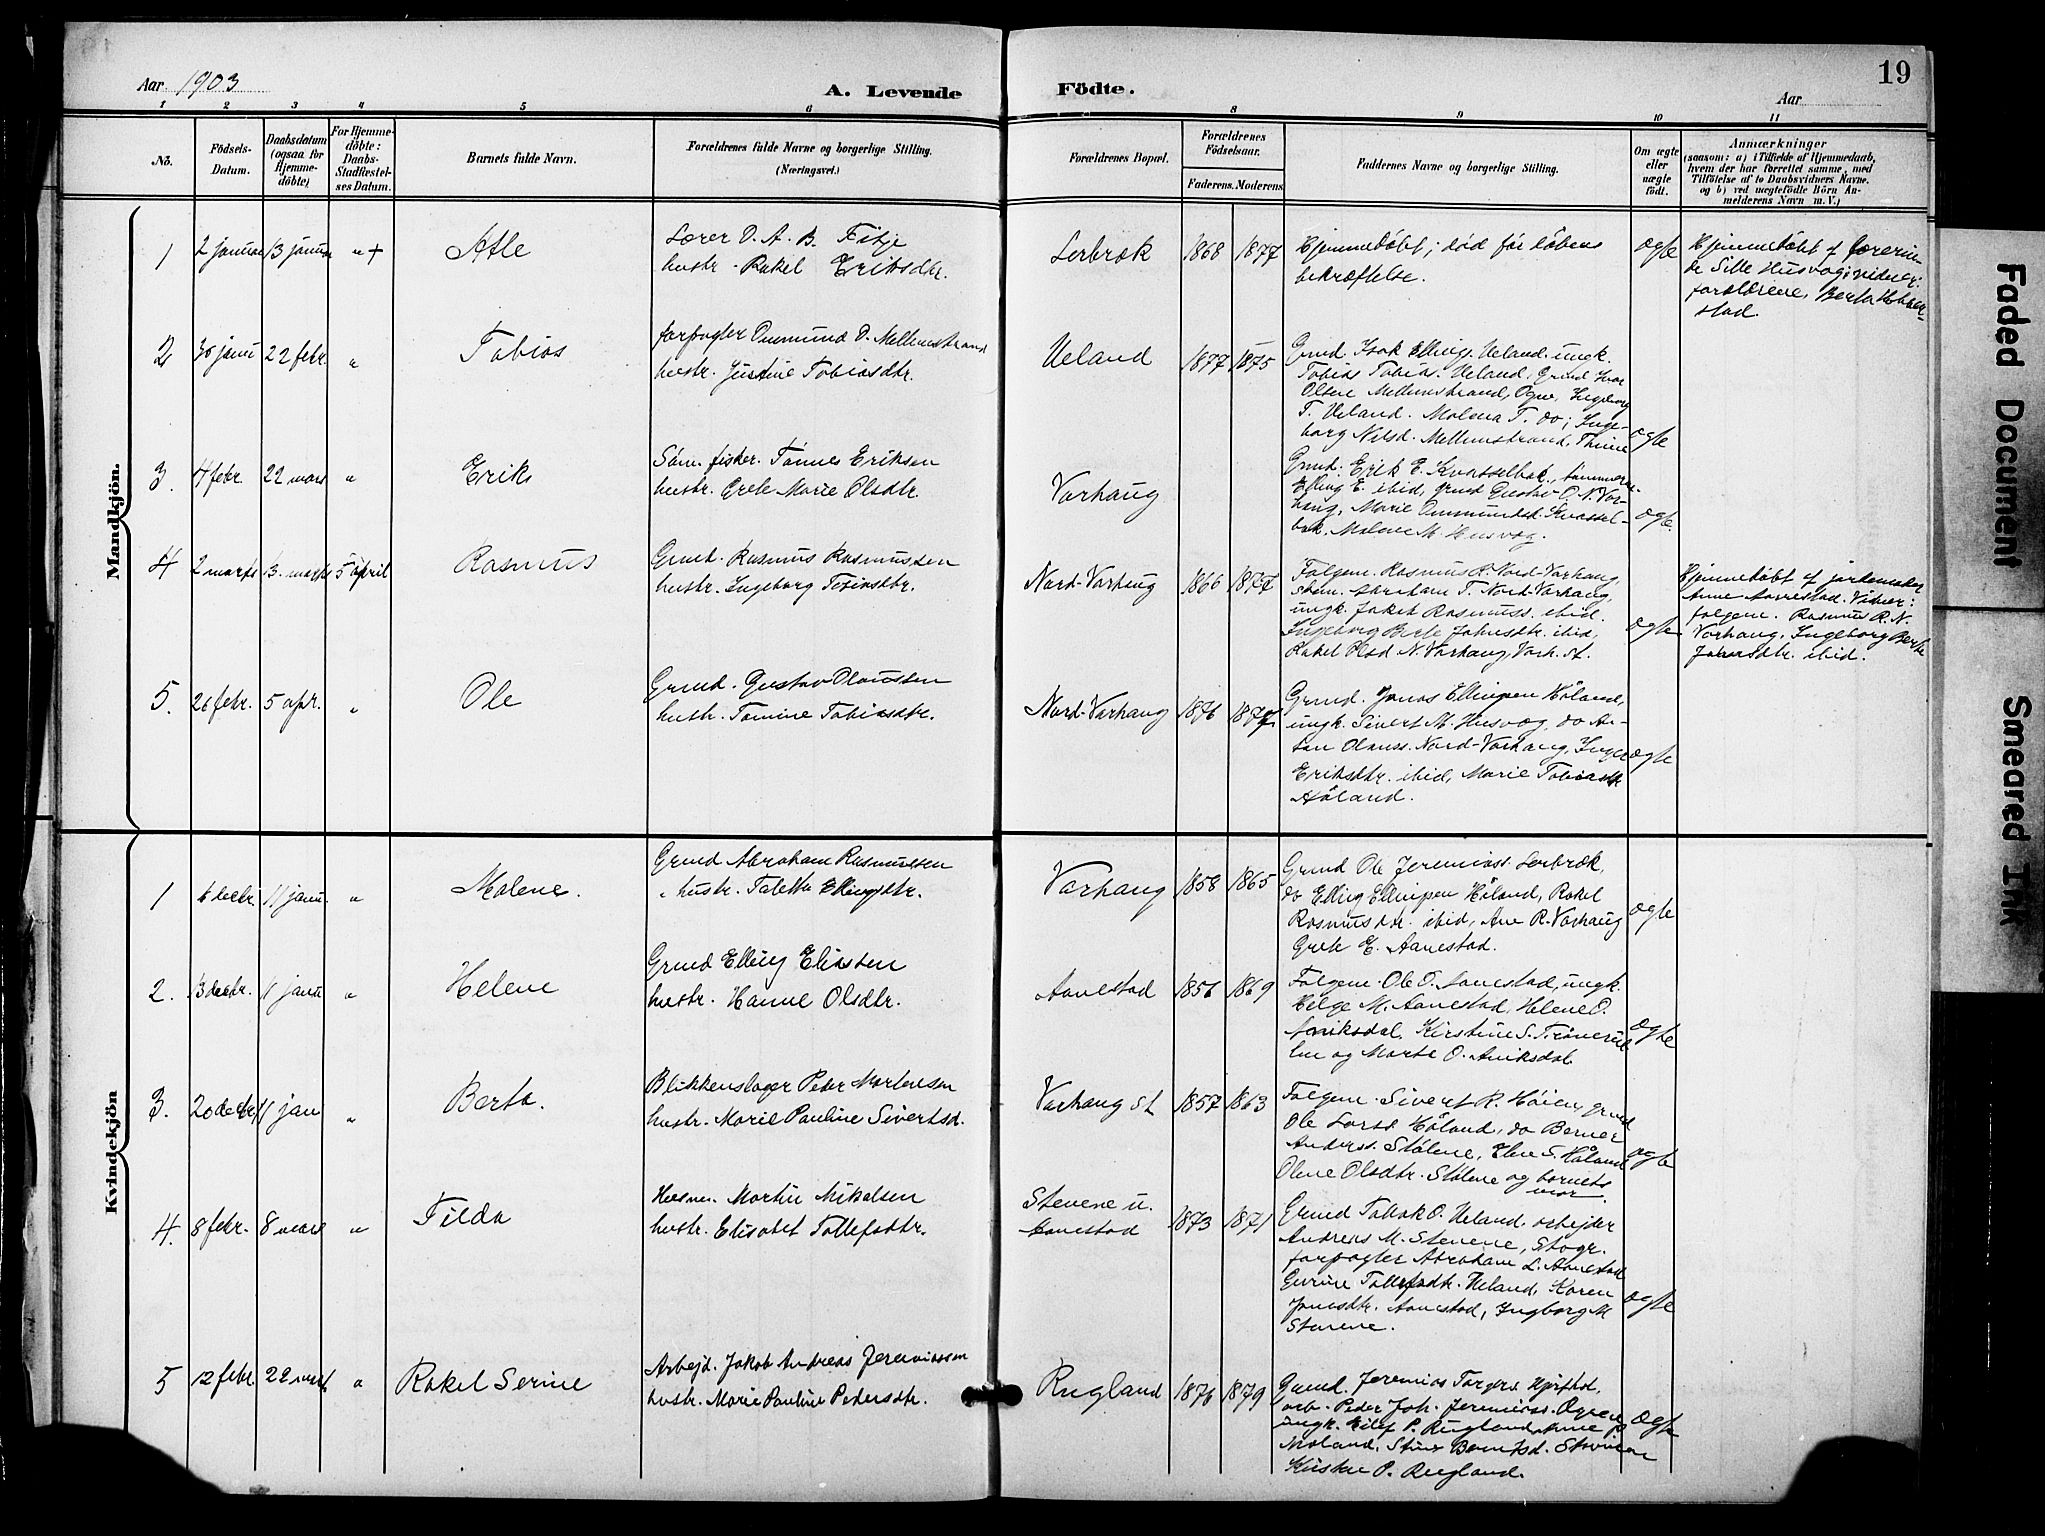 Aar 1903
A. Levende Födte.
Aar
19
1 2 3 4 5 6 8 9 10 11
No.
Födsels-Datum.
Daabsdatum (ogsaa for Hjemme-döbte)
For Hjemme-döbte: Daabs-Stadfæstel-ses Datum.
Barnets fulde Navn.
Forældrenes fulde Navne og borgerlige Stilling. (Næringsvei.)
Forældrenes Bopæl.
Forældrenes Födselsaar.
Faderens. Moderens
Faddernes Navne og borgerlige Stilling.
Om ægte eller uægte födt.
Anmærkninger
(saasom: a) i Tilfælde af Hjemmedaab,
hvem der har forrettet samme, med
Tilföielse af to Daabsvidners Navne,
og b) ved uægtefödte Börn An-
melderens Navn m.V.)
Mandkjön.
1 2 januar 13 januar " + Atle
Lærer O. A. B. Fitje
hustr. Rakel Eriksdtr.
Lerbræk 1868 1877
Hjemmedöbt; död før döbens
bekræftelse.
ægte
Hjemmedöbt af Lærerin-
de Sille Husvæg; vidner:
forældrene, Berta
stad.
2 30 janu 22 febr. " Tobias
forpagter Ommund O. Mellemstrand
hustr. Justine Tobiasdtr.
Ueland 1877 1875
Grmd. Isak Ellings. Ueland, ungk.
Tobias Tobias. Ueland, Grmd Ivar
Olsen Mellemstrand, Ogne, Ingeborg
T. Ueland. Malena T. do; Inge-
borg Nilsd. Mellemstrand, Thime
ægte
3. 4 febr. 22 mars " Erik
Söm. fisker. Tönnes Eriksen
hustr. Grete Marie Olsdtr.
Varhaug
Grmd. Erik E. Kvasselbæk,
Elling E. ibid, grmd Gustav O. N. Var-
haug, Marie Ommundsd. Kvassel-
bæk, Malene M. Husvæg.
ægte.
4 2 marts 13. marts 5 april Rasmus
Grmd. Rasmus Rasmussen
hustr. Ingeborg Tobiasdtr.
Nord-Varhaug 1866 1877
Folgem. Rasmus R. Nord-Varhaug,
Abraham T. Nord-Varhaug,
ungk. Jakob Rasmuss. ibid.
Ingeborg Berte Johnsdtr. ibid,
Rakel Olsd N. Varhaug, Varh. st.
ægte
Hjemmedöbt af jordemoder
Anne Aarrestad. Vidner:
folgem. Rasmus R. N.
Varhaug, Ingeborg Berte
Johnsdtr. ibid.
5. 26 febr. 5 apr. " Ole
Grmd. Gustav Olaussen
hustr. Tomine Tobiasdtr.
Nord-Varhaug 1876 1877
Grmd. Jonas Ellingsen Höland,
ungk. Sivert M. Husvæg, do An-
ton Olauss. Nord-Varhaug, Inger
Eriksdtr. ibid, Marie Tobiasdtr
Höland.
ægte
Kvindekjön
1 6 decbr. 11 janu. " Malene.
Grmd Abraham Rasmussen
" hustr. Taletta Ellingsdtr.
Varhaug 1858 1865
Grmd Ole Jeremiass. Lerbræk,
do Elling Ellingsen Höland, Rakel
Rasmusdtr. ibid, Ane R. Varhaug
Grete E. Aanestad.
ægte
2. 13 decbr. 11 janu " Helene
Grmd Elling Eliassen
hustr. Hanne Olsdtr.
Aanestad 1856 1869
Folgem. Ole O. Aanestad, ungk.
Helge M. Aanestad, Helene O.
Aniksdal, Kirstine S.
og Marte O. Aniksdal.
ægte
3. 20 decbr 11 jan " Berta.
Blikkenslager Peder Mortensen
hustr. Marie Pauline Sivertsd.
Varhaug st 1857 1863
Folgem. Sivert R. Höien, grmd
Ole Larss Höland, do Berner
Anderss. Stölene, Elene S. Höland
Olene Olsdtr. Stölene og barnets
mor.
ægte
4. 8 febr. 8 mars " Tilda
Husm. Martin Mikalsen
hustr. Elisabet Tollefsdtr.
Stenene u.
Aanestad 1873 1871
Grmd Tollak O. Ueland, arbejder
Andreas M. Stenene, Skogr.
forpagter Abraham L. Aanestad
Gurine Tollefsdtr. Ueland, Karen
Jonasdtr. Aanestad, Ingborg M
Stenene.
ægte
5 12 febr. 22 mars " Rakel Serine
Arbejd. Jakob Andreas Jeremiassen
hustr. Marie Pauline Pedersdtr.
Rugland 1876 1879
Grmd. Jeremias Torgers.
arb. Peder Joh. Jeremiass. Ogne
ungk. Eilef P. Rugland, Anne
Moland, Stine Berntsd.
P. Rugland.
ægte
Faded Document
Smeared Ink